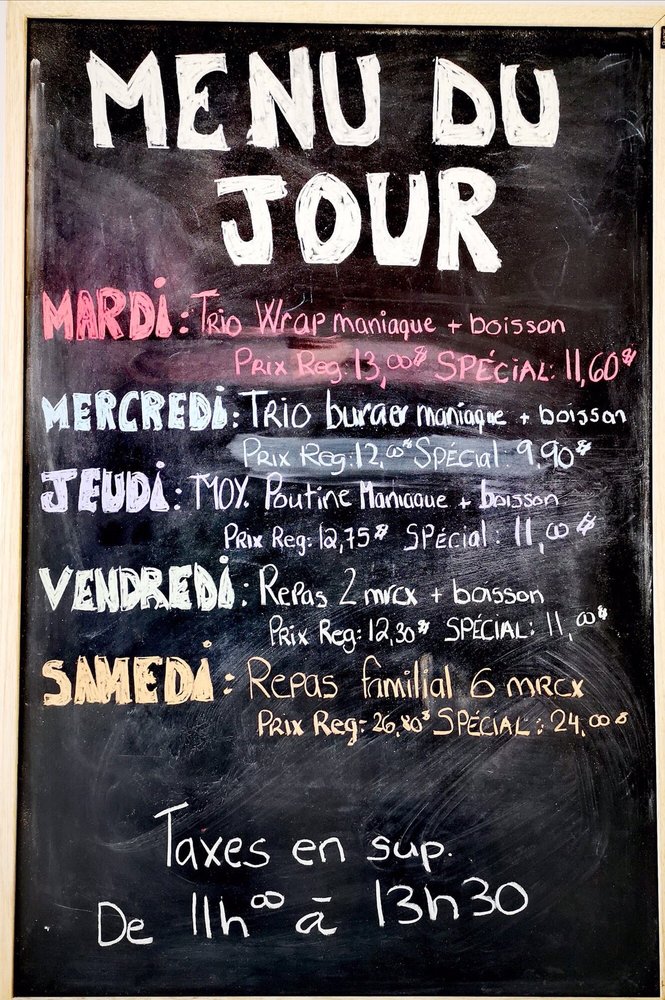 MENU DU
JOUR
MARDI: TRIO Wrap maniaque + boisson
PRIX Reg: 13,00$ SPÉCIAL: 11,60$
MERCREDI: TRIO burger maniaque + boisson
PRIX Reg: 12,00$ SPÉCIAL: 9,90$
JEUDI: MOY. Poutine Maniaque + boisson
PRIX Reg: 12,75$ SPÉCIAL: 11,00$
VENDREDI: Repas 2 mrcx + boisson
PRIX Reg: 12,30$ SPÉCIAL: 11,00$
SAMEDI: Repas familial 6 mrcx
PRIX Reg: 26,80$ SPÉCIAL: 24,00$
Taxes en sup.
De 11h00 à 13h30